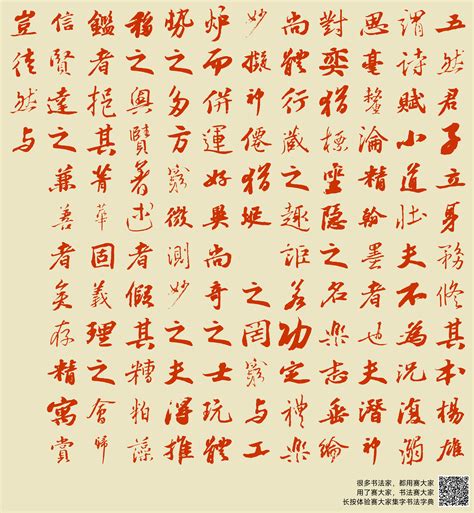 五然君子立身務修其本楊雄
謂詩賦小道壯夫不為況復溺
思毫釐淪精翰墨者也夫潛神
對奕猶標坐隱之名樂志垂綸
尚體行藏之趣詎若功定禮樂
妙擬神僊猶埏之罔窮與工
爐而併運好異尚奇之士玩體
勢之多方窮微測妙之夫得推
移之奧賾著述者假其糟粕藻
鑑者挹其菁華固義理之會歸
信賢達之兼善者矣存精寓賞
豈徒然與
很多书法家,都用赛大家
用了赛大家,书法赛大家
长按体验赛大家集字书法字典